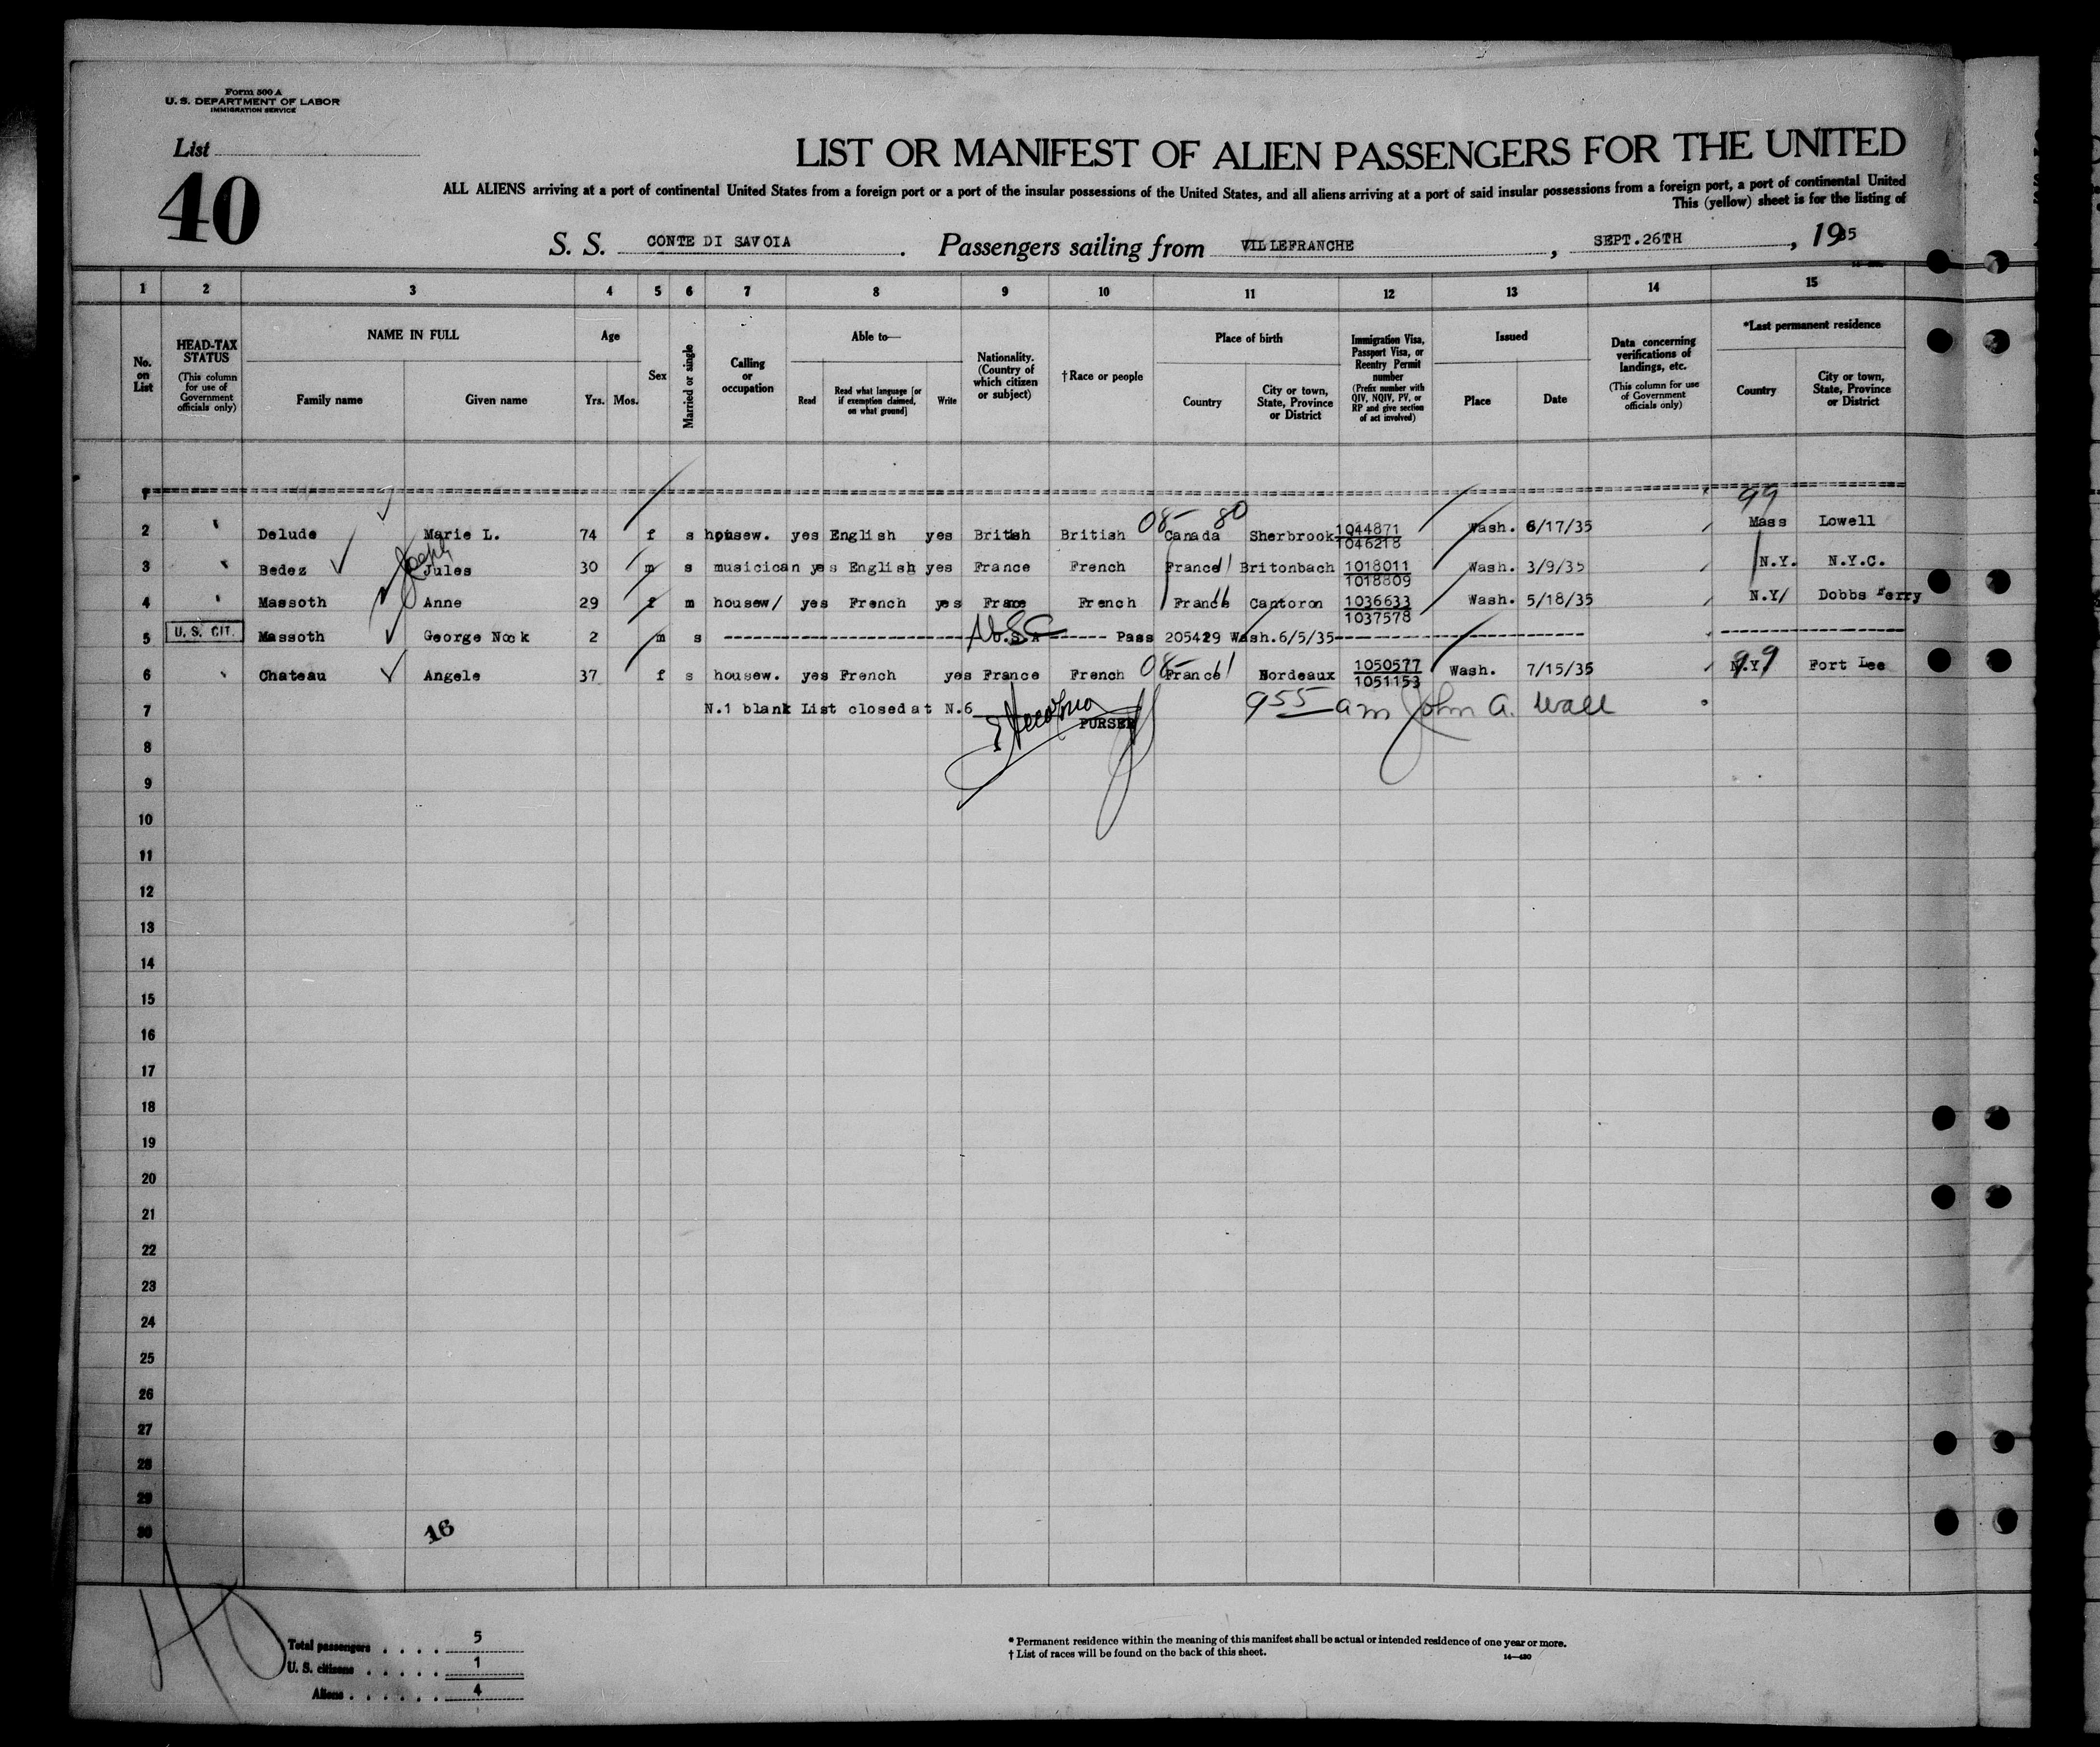 Form 500 A
U. S. DEPARTMENT OF LABOR
IMMIGRATION SERVICE
List
40
LIST OR MANIFEST OF ALIEN PASSENGERS FOR THE UNITED
ALL ALIENS arriving at a port of continental United States from a foreign port or a port of the insular possessions of the United States, and all aliens arriving at a port of said insular possessions from a foreign port, a port of continental United
This (yellow) sheet is for the listing of
S. S. CONTE DI SAVOIA . Passengers sailing from VILLEFRANCHE , SEPT.26TH , 1935
1 2 3 4 5 6 7 8 9 10 11 12 13 14 15
No. on List
HEAD-TAX STATUS (This column for use of Government officials only)
NAME IN FULL
Family name Given name
Age
Yrs. Mos.
Sex
Married or single
Calling or occupation
Able to—
Read Read what language [or if exemption claimed, on what ground] Write
Nationality. (Country of which citizen or subject)
† Race or people
Place of birth
Country City or town, State, Province or District
Immigration Visa, Passport Visa, or Reentry Permit number (Prefix number with QIV, NQIV, PV, or RP and give section of act involved)
Issued
Place Date
Data concerning verifications of landings, etc. (This column for use of Government officials only)
*Last permanent residence
Country City or town, State, Province or District
1
08- 80 99
2 Delude Marie L. 74 f s housew. yes English yes British British Canada Sherbrook 1044871 1046218 Wash. 6/17/35 Mass Lowell
Joseph
3 Bedez Jules 30 m s musicican yes English yes France French France Britonbach 1018011 1018809 Wash. 3/9/35 N.Y. N.Y.C.
4 Massoth Anne 29 f m housew/ yes French yes France French France Cantoron 1036633 1037578 Wash. 5/18/35 N.Y/ Dobbs Ferry
5 U. S. CIT. Massoth George Nock 2 m s U.S.A Pass 205429 Wash.6/5/35
08- 99
6 Chateau Angele 37 f s housew. yes French yes France French France Bordeaux 1050577 1051153 Wash. 7/15/35 N.Y. Fort Lee
7 N.1 blank List closed at N.6 PURSER 955 am John A. Wall
8
9
10
11
12
13
14
15
16
17
18
19
20
21
22
23
24
25
26
27
28
29
30
16
40
Total passengers . . . . 5
U. S. citizens . . . . . 1
Aliens . . . . . . 4
* Permanent residence within the meaning of this manifest shall be actual or intended residence of one year or more.
† List of races will be found on the back of this sheet.
14—430